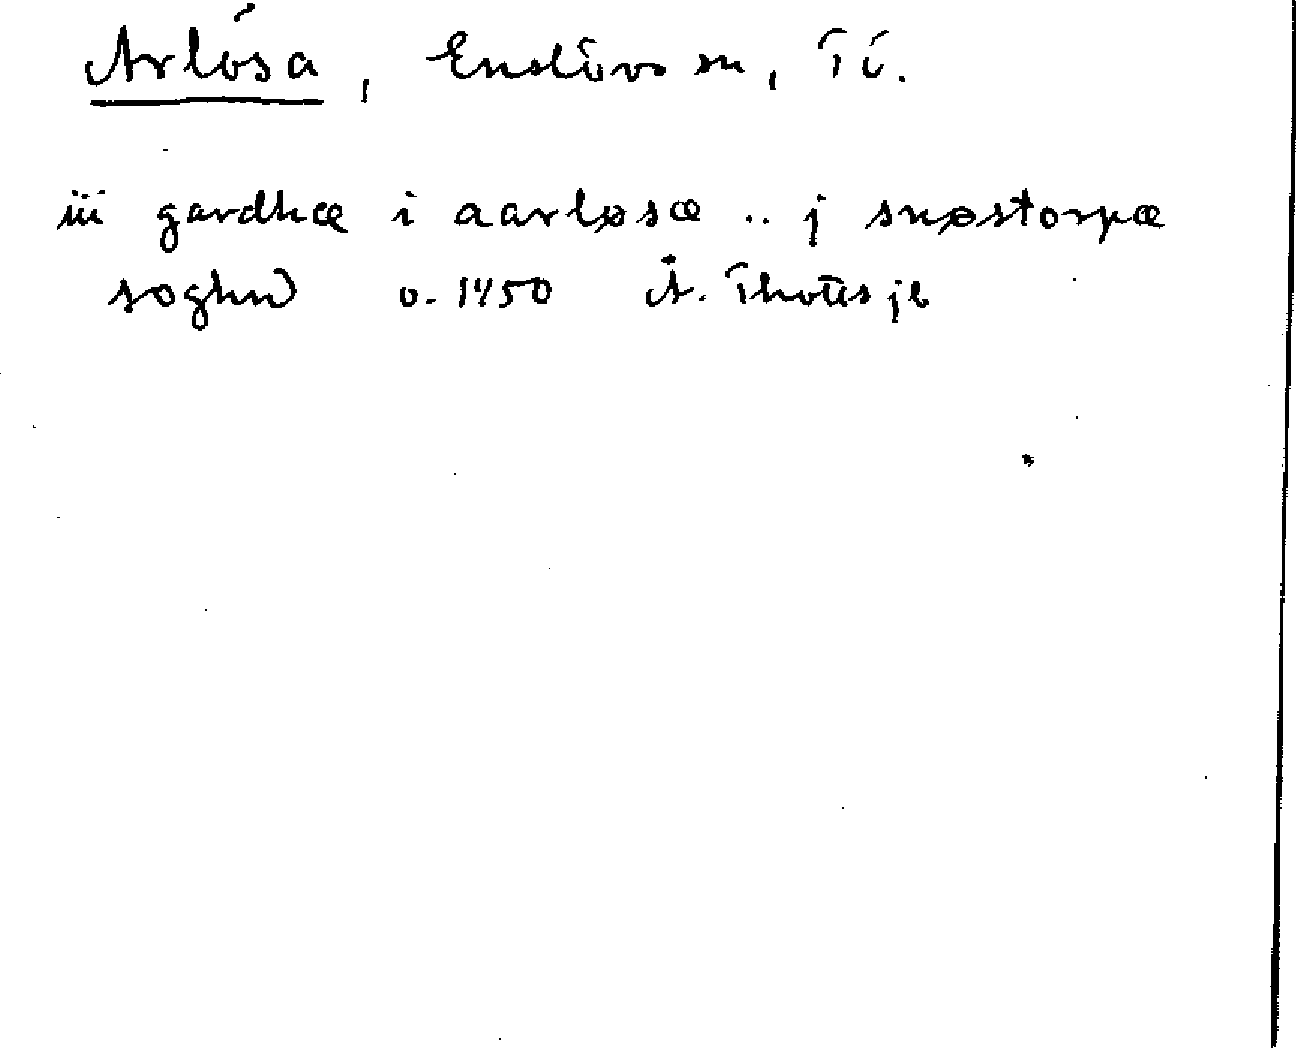 Arlösa, Enslövs sn, Tö.
iii gardhæ i aarløsæ .. j snøstorpæ
soghn o. 1450 Å. Thotts jb